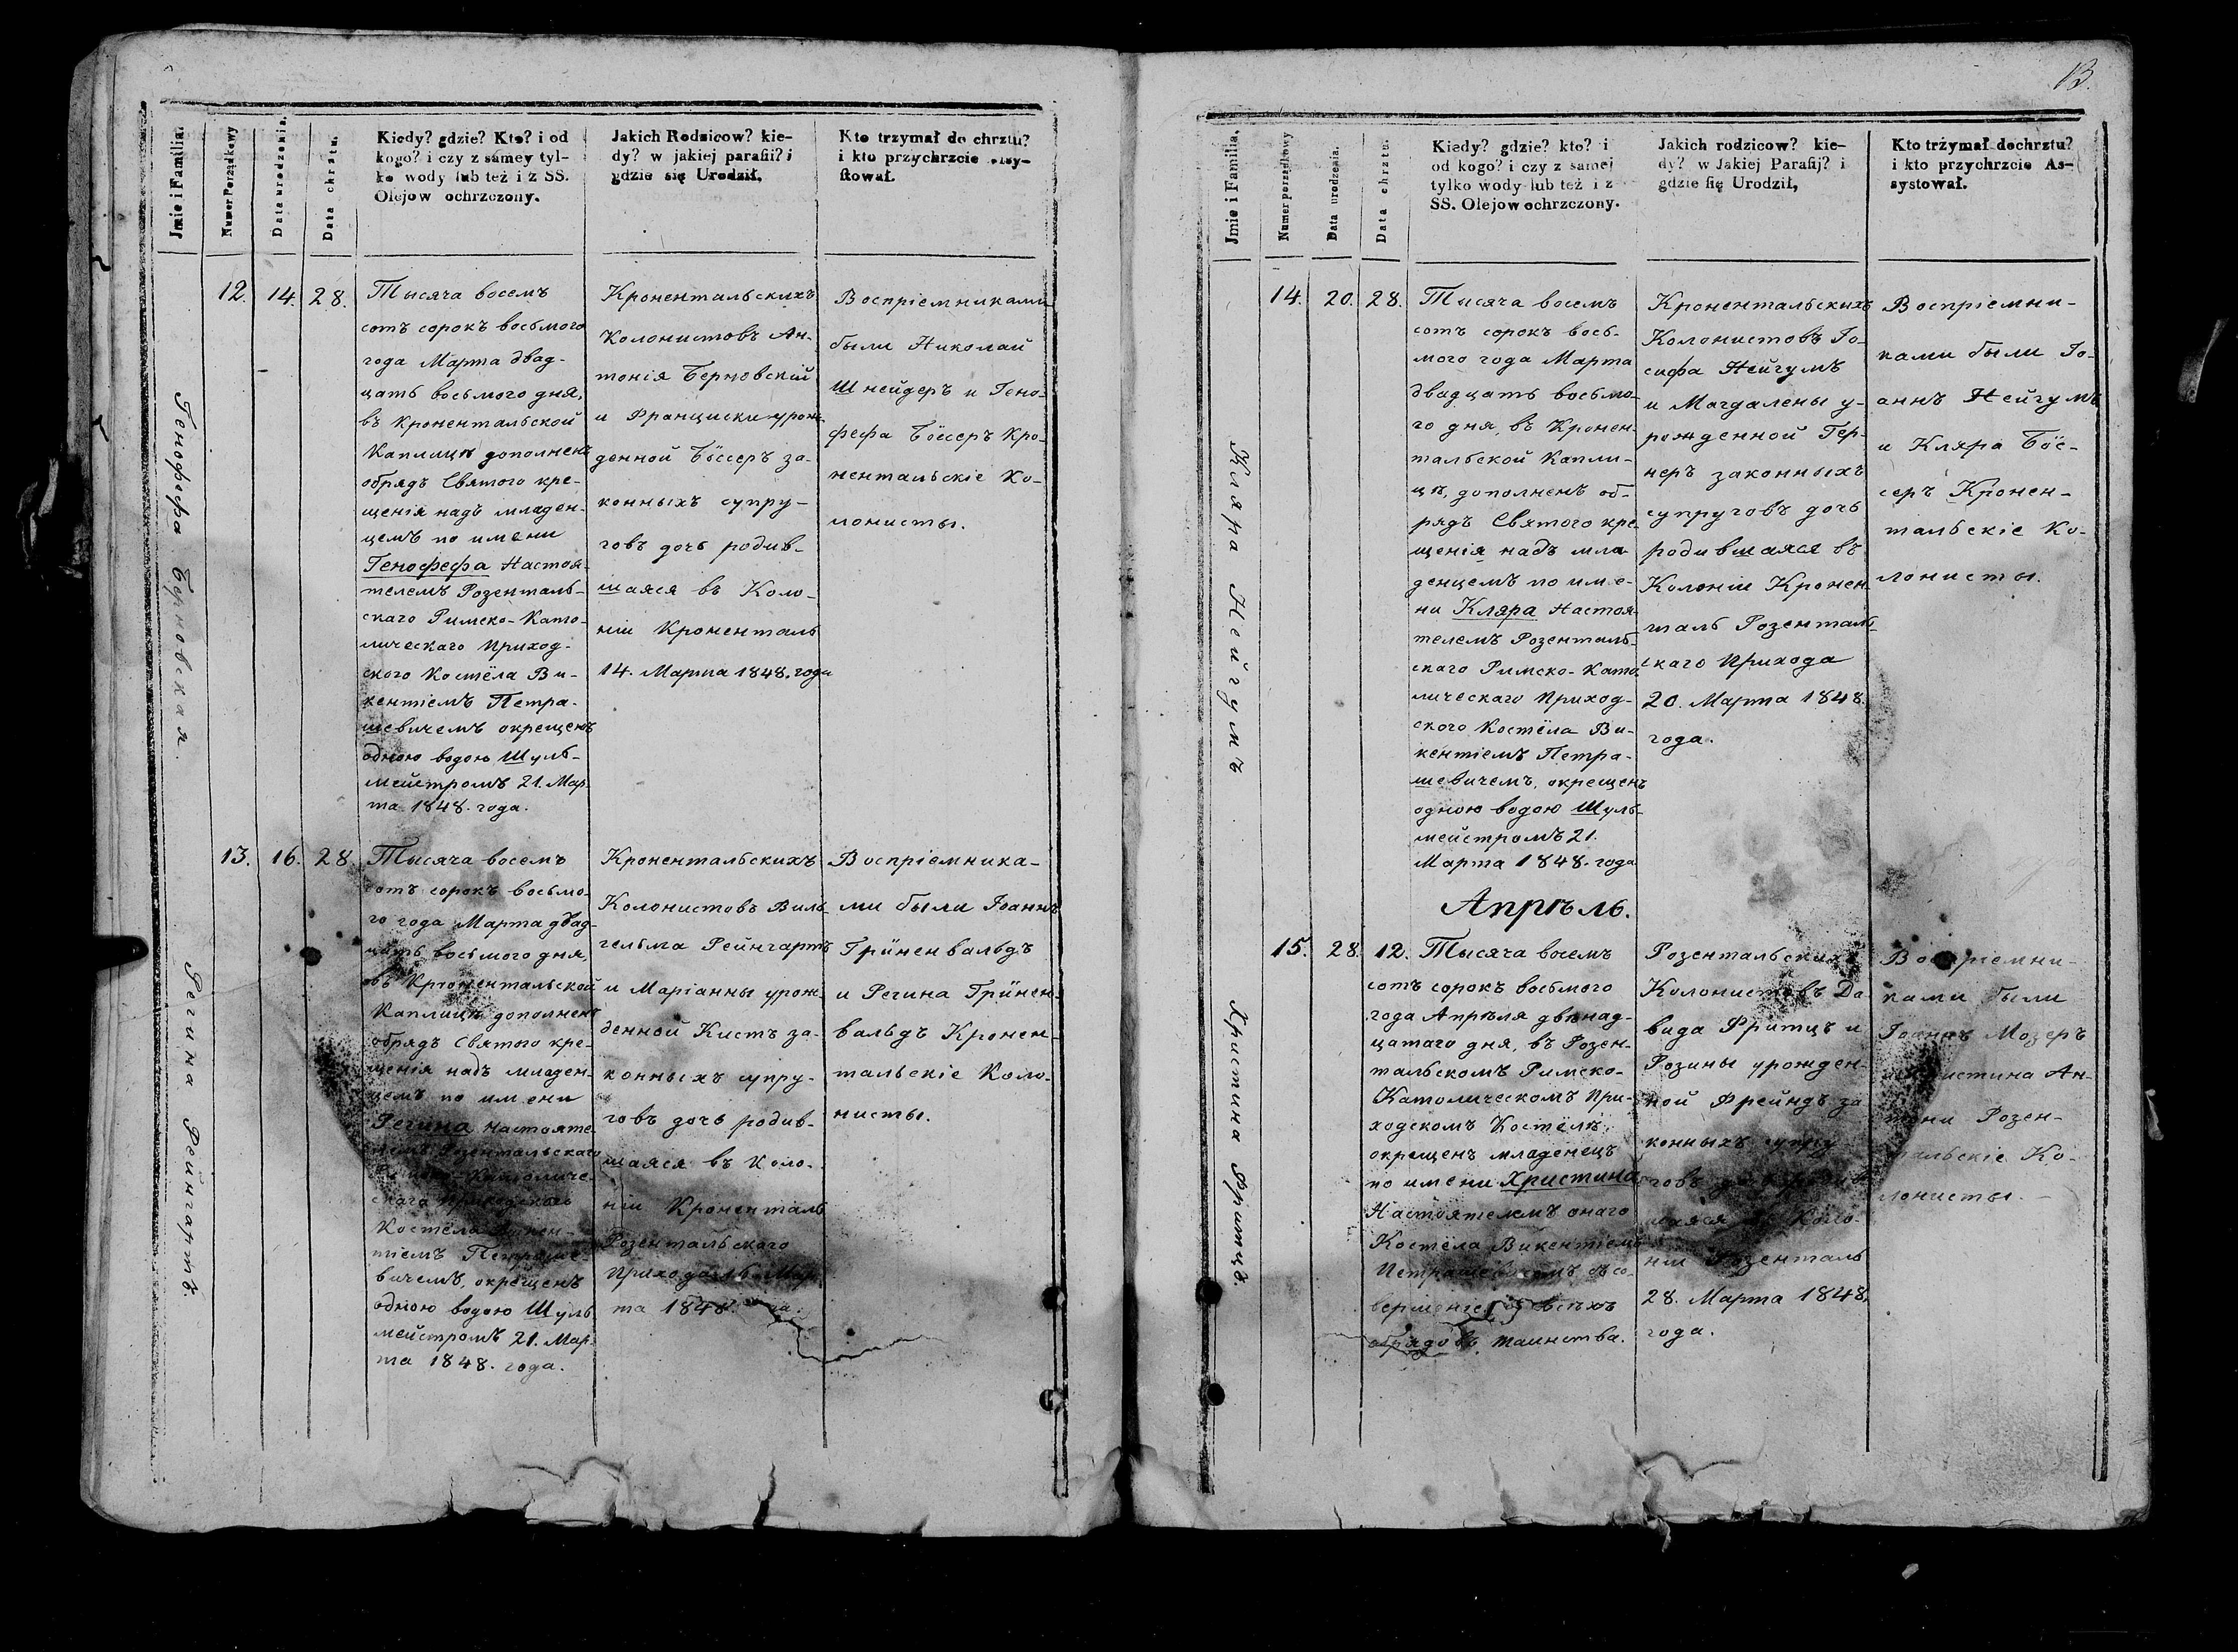 13.
Jmie i Familia.
Numer Porządkowy
Data urodzenia.
Data chrztu.
Kiedy? gdzie? Kto? i od
kogo? i czy z samey tyl-
ko wody lub też i z SS.
Olejow ochrzczony.
Jakich Rodzicow? kie-
dy? w jakiej parafii? i
gdzie się Urodził.
Kto trzymał do chrztu?
i kto przychrzcie
stował.
Генофефа Берновская.
12.
14.
28.
Тысяча восемъ
сотъ сорокъ восьмого
года Марта двад-
цать восьмого дня,
въ Кронентальской
Каплицѣ дополненъ
обрядъ Святого кре-
щенія надъ младен-
цемъ по имени
Генофефа Настоя-
телемъ Розенталь-
скаго Римско-Като-
лическаго Приход-
ского Костёла Ви-
кентіемъ Петра-
шевичемъ окрещенъ
одною водою Шуль-
мейстромъ 21. Мар-
та 1848. года.
Кронентальскихъ
Колонистовъ Ан-
тонія Берновскій
и Франциски урож-
денной Бёссеръ за-
конныхъ супру-
говъ дочь родив-
шаяся въ Коло-
ніи Кроненталь
14. Марта 1848. года
Воспріемниками
были Николай
Шнейдеръ и Гено-
фефа Бёссеръ Кро-
нентальскіе Ко-
лонисты.
Регина Рейнгартъ.
13.
16.
28.
Тысяча восемъ
сотъ сорокъ восьмо-
го года Марта двад-
цать восьмого дня,
въ Кронентальской
Каплицѣ дополненъ
обрядъ Святого кре-
щенія надъ младен-
цемъ по имени
Регина настояте-
лемъ Розентальскаго
Римско-Католиче-
скаго Приходскаго
Костёла Викен-
тіемъ Петраше-
вичемъ, окрещенъ
одною водою Шуль-
мейстромъ 21. Мар-
та 1848. года.
Кронентальскихъ
Колонистовъ Виль-
гельма Рейнгартъ
и Маріанны урож-
денной Кистъ за-
конныхъ супру-
говъ дочь родив-
шаяся въ Коло-
ніи Кроненталь
Розентальскаго
Прихода 16. Мар-
та 1848.
Воспріемника-
ми были Іоаннъ
Грüненвальдъ
и Регина Грüнен-
вальдъ Кронен-
тальскіе Коло-
нисты.
Jmie i Familia.
Numer porządkowy
Data urodzenia.
Data chrztu.
Kiedy? gdzie? kto? i
od kogo? i czy z samej
tylko wody lub też i z
SS. Olejow ochrzczony.
Jakich rodzicow? kie-
dy? w Jakiej Parafij? i
gdzie się Urodził,
Kto trżymał dochrztu?
i kto przychrzcie As-
systował.
Кляра Нейгумъ
14.
20.
28.
Тысяча восемъ
сотъ сорокъ вось-
мого года Марта
двадцать восьмо-
го дня, въ Кронен-
тальской Капли-
цѣ, дополненъ об-
рядъ Святого кре-
щенія надъ мла-
денцемъ по име-
ни Кляра Настоя-
телемъ Розенталь-
скаго Римско-Като-
лическаго Приход-
ского Костёла Ви-
кентіемъ Петра-
шевичемъ, окрещенъ
одною водою Шуль-
мейстромъ 21.
Марта 1848. года
Кронентальскихъ
Колонистовъ Іо-
сифа Нейгумъ
и Магдалены у-
рожденной Гер-
неръ законныхъ
супруговъ дочь
родившаяся въ
Колоніи Кронен-
таль Розенталь-
скаго Прихода
20. Марта 1848.
года.
Воспріемни-
ками были Іо-
аннъ Нейгумъ
и Кляра Бöс-
серъ Кронен-
тальскіе Ко-
лонисты.
Апрѣль.
Христина Фритцъ.
15.
28.
12.
Тысяча восемъ
сотъ сорокъ восьмого
года Апрѣля двѣнад-
цатаго дня, въ Розен-
тальскомъ Римско-
Католическомъ При-
ходскомъ Костёлѣ,
окрещенъ младенецъ
по имени Христина
Настоятелемъ онаго
Костёла Викентіемъ
Петрашевичемъ съ со-
вершеніемъ всѣхъ
обрядовъ таинства.
Розентальскихъ
Колонистовъ Да-
вида Фритцъ и
Розины урожден-
ной Фрейндъ за-
конныхъ супру-
говъ дочь родив-
шаяся въ Коло-
ніи Розенталь
28. Марта 1848.
года.
Воспріемни-
ками были
Іоаннъ Мозеръ
и Христина Ан-
тони Розен-
тальскіе Ко-
лонисты.